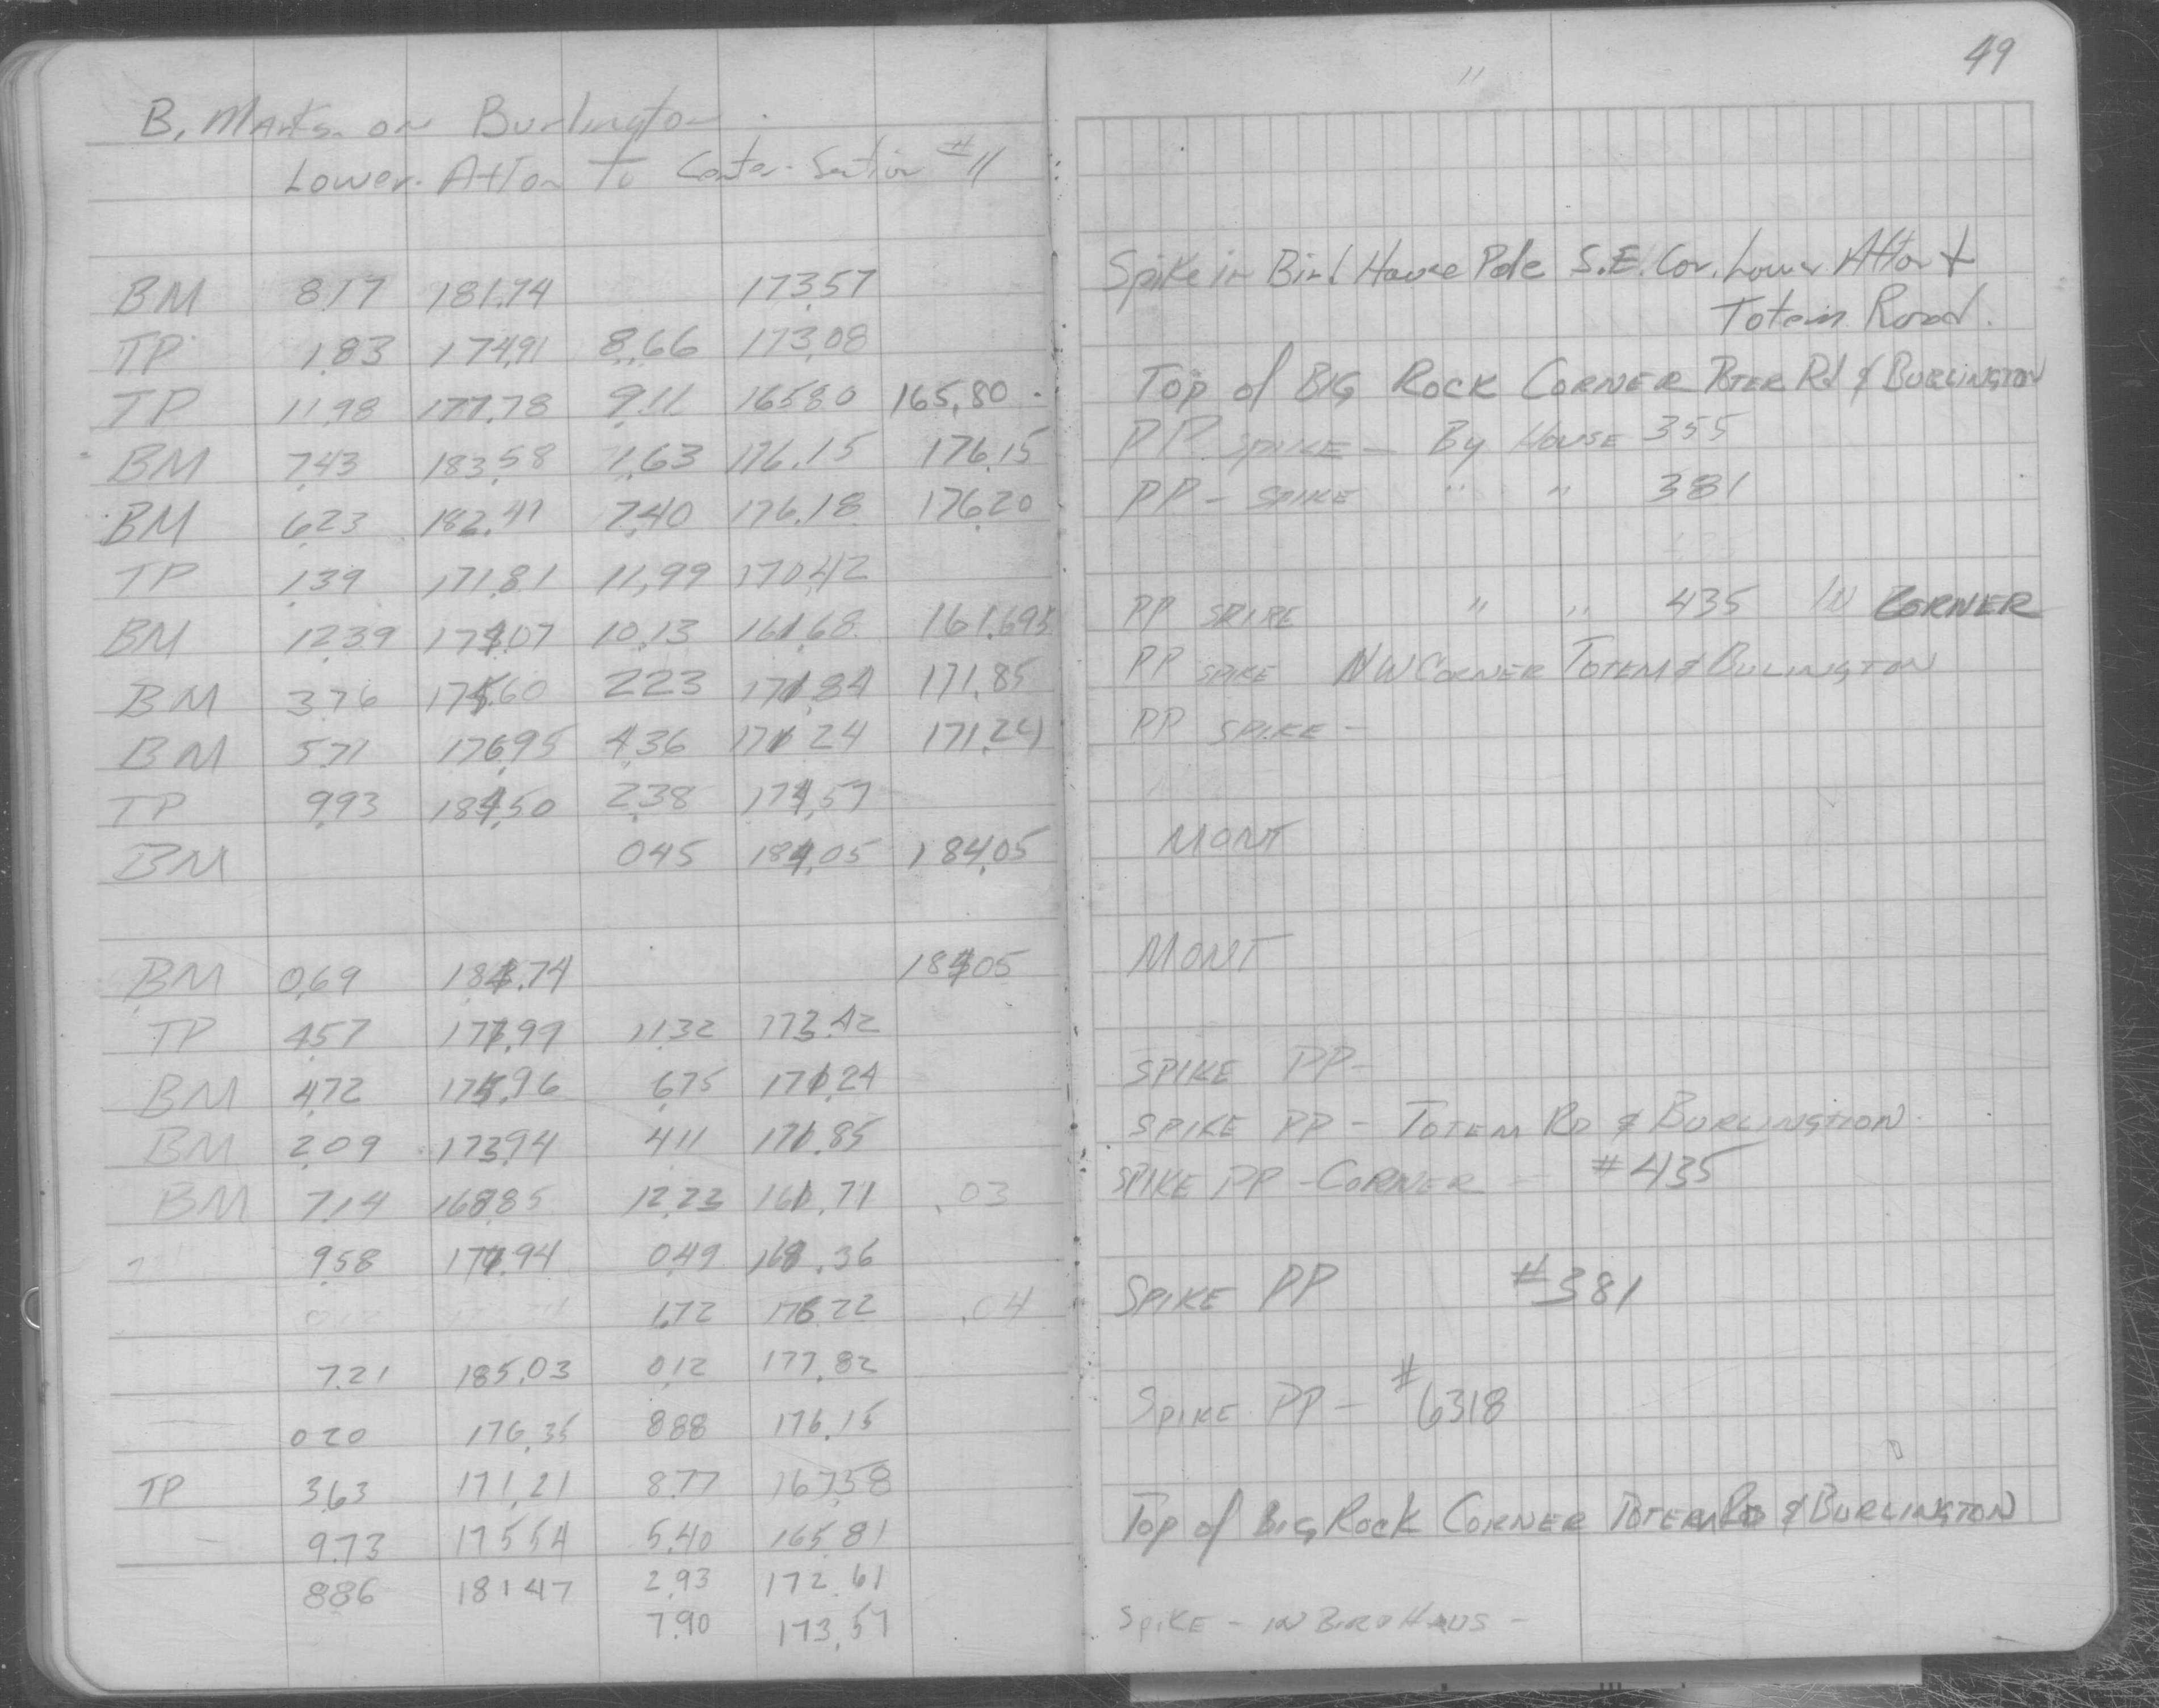 49
B. Marks on Burlington
Lower Afton To Center Section #11
BM 8.17 181.74 173.57 Spike in Bird House Pole S.E. Cor. Lower Afton &
Totem Road.
TP 1.83 174.91 8.66 173.08
TP 11.98 177.78 9.11 165.80 165.80 Top of BIG ROCK CORNER Rd & BURLINGTON
BM 7.43 183.58 1.63 176.15 176.15 PP SPIKE - By HOUSE 355
BM 6.23 182.41 7.40 176.18 176.20 PP - SPIKE " " 381
TP 1.39 171.81 11.99 170.42
BM 12.39 174.07 10.13 161.68 161.695 PP SPIKE " " 435 IN CORNER
BM 3.76 175.60 2.23 171.84 171.85 PP SPIKE NW CORNER TOTEM & BULINGTON
BM 5.71 176.95 4.36 171.24 171.24 PP SPIKE -
TP 9.93 184.50 2.38 174.57
BM 0.45 184.05 184.05 MONT
BM 0.69 184.74 184.05 MONT
TP 4.57 177.99 11.32 173.42
BM 4.72 175.96 6.75 171.24 SPIKE PP-
BM 2.09 173.94 4.11 171.85 SPIKE PP - TOTEM RD & BURLINGTION
BM 7.14 168.85 12.23 161.71 .03 SPIKE PP - CORNER - #435
9.58 177.94 0.49 168.36
1.72 176.22 .04 SPIKE PP #381
7.21 185.03 0.12 177.82
0 20 176.35 888 176.15 SPIKE PP - #6318
TP 3.63 171.21 8.77 167.58
9.73 175 54 5.40 165.81 Top of BIG ROCK CORNER TOTEM RD & BURLINGTON
886 181 47 2.93 172.61
7.90 173.57 SPIKE - IN BIRD HAUS -